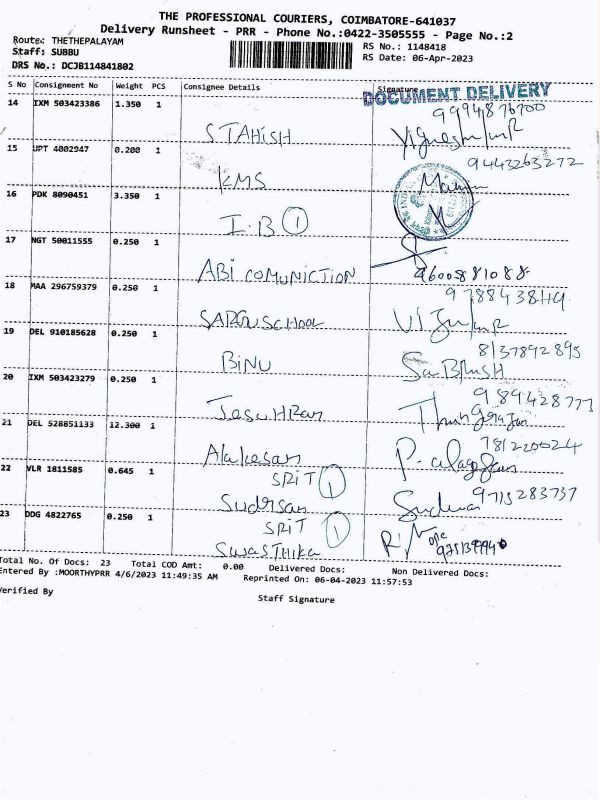 THE PROFESSIONAL COURIERS, COIMBATORE-641037
Delivery Runsheet - PRR - Phone No.:0422-3505555 - Page No.:2
Route: THETHEPALAYAM
Staff: SUBBU
DRS No.: DCJB114841802
RS No.: 1148418
RS Date: 06-Apr-2023
S No Consignment No Weight PCS Consignee Details Signature
DOCUMENT DELIVERY
14 IXM 503423386 1.350 1
9994876700
STAHISH
15 JPT 4002947 0.200 1
9443263272
KMS
16 PDK 8090451 3.350 1
I.B 1
17 NGT 50011555 0.250 1
ABI COMUNICTION 9600881088
18 MAA 296759379 0.250 1
SCHOOL
19 DEL 910185628 0.250 1
8137892895
BINU
20 IXM 503423279 0.250 1
21 DEL 528851133 12.300 1
Alakesan
22 VLR 1811585 0.645 1
SRIT 1
9715283737
Sudrsan
23 DDG 4822765 0.250 1
SRIT 1
SwasTHika
Total No. Of Docs: 23 Total COD Amt: 0.00 Delivered Docs: Non Delivered Docs:
Entered By :MOORTHYPRR 4/6/2023 11:49:35 AM Reprinted On: 06-04-2023 11:57:53
Verified By
Staff Signature